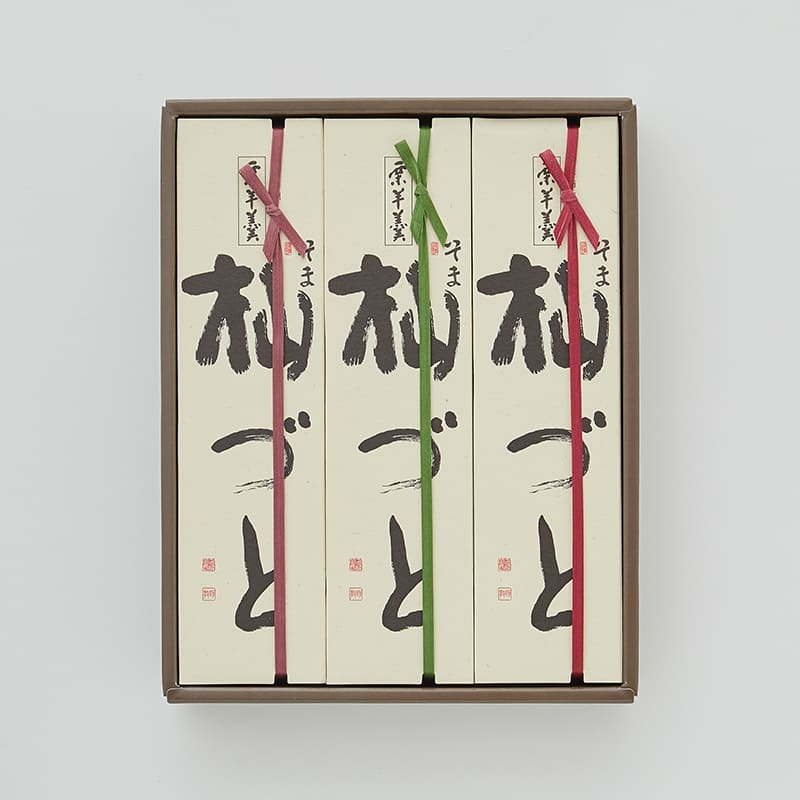 栗羊羹
そま
杣づと
栗羊羹
そま
杣づと
栗羊羹
そま
杣づと